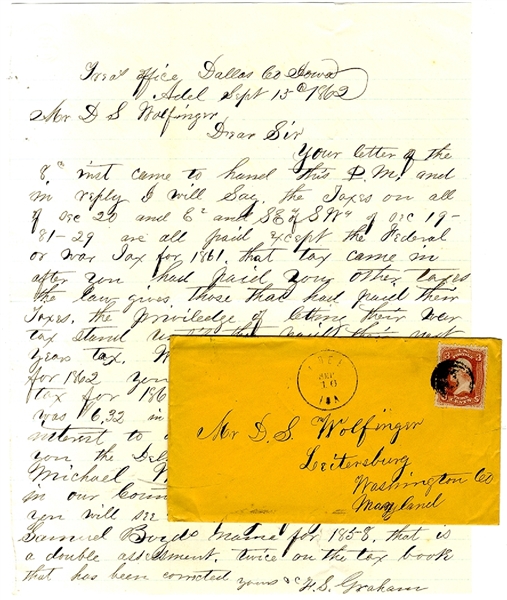 Treas office Dallas Co Iowa
Adel Sept 15th 1862
Mr D S Wolfinger
Dear Sir
Your letter of the
8th inst came to hand this P.M. and
in reply I will Say. the Taxes on all
of sec 20 and E½ and SE of SW¼ of sec 19-
81-29 are all paid except the Federal
or War Tax for 1861. that tax came in
after you had paid your other taxes
the law gives those that had paid their
Taxes. the priviledge of letting their war
tax stand until they paid their next
year tax.
for 1862 you
tax for 186
was $6.32 in
interest to
you the
Michael
in our Coun
you will see
Samuel Boyds name for 1858. that is
a double assessment. twice on the tax book
that has been corrected yours &c H. S. Graham
ADEL
SEP
16
IOA
3 3
CENTS
Mr D. S. Wolfinger
Leitersburg
Washington Co
Maryland